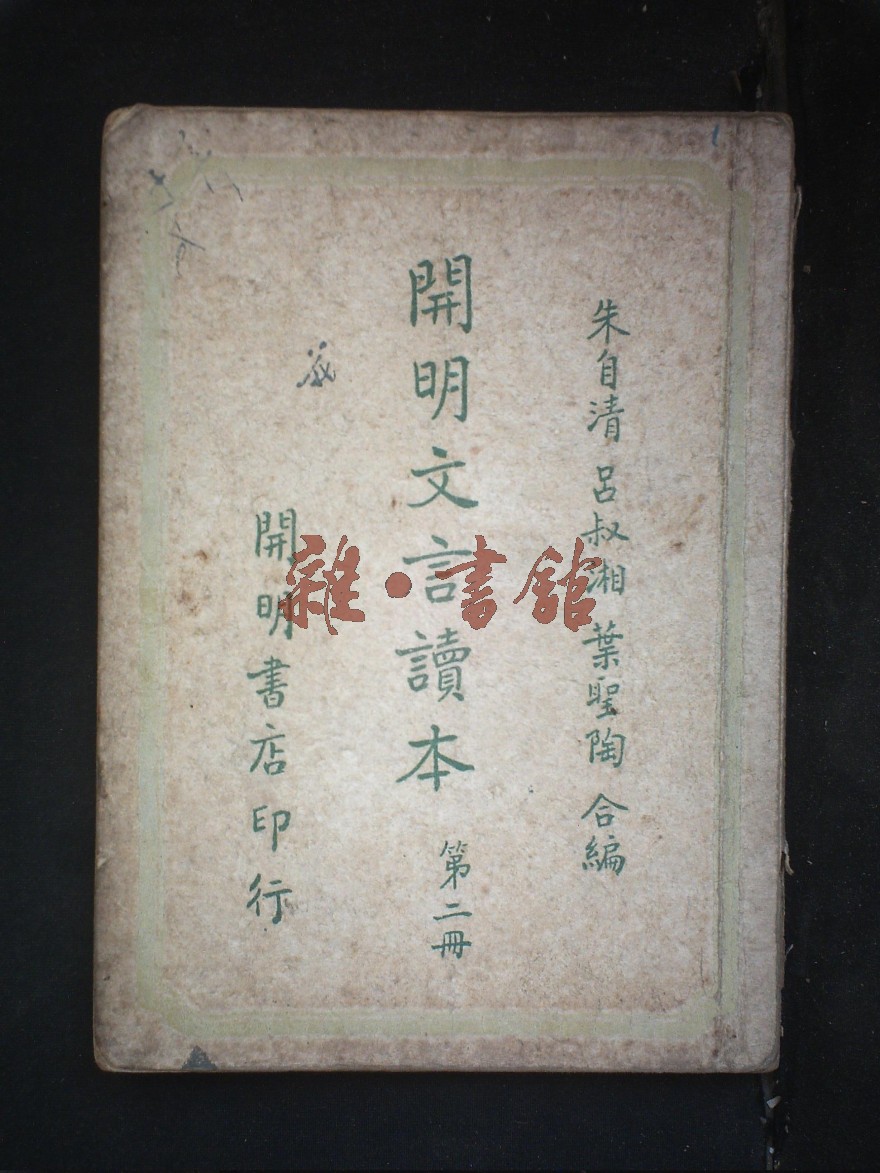 朱自清 呂叔湘 葉聖陶 合編
開明文言讀本 第二冊
開明書店印行
雜·書館